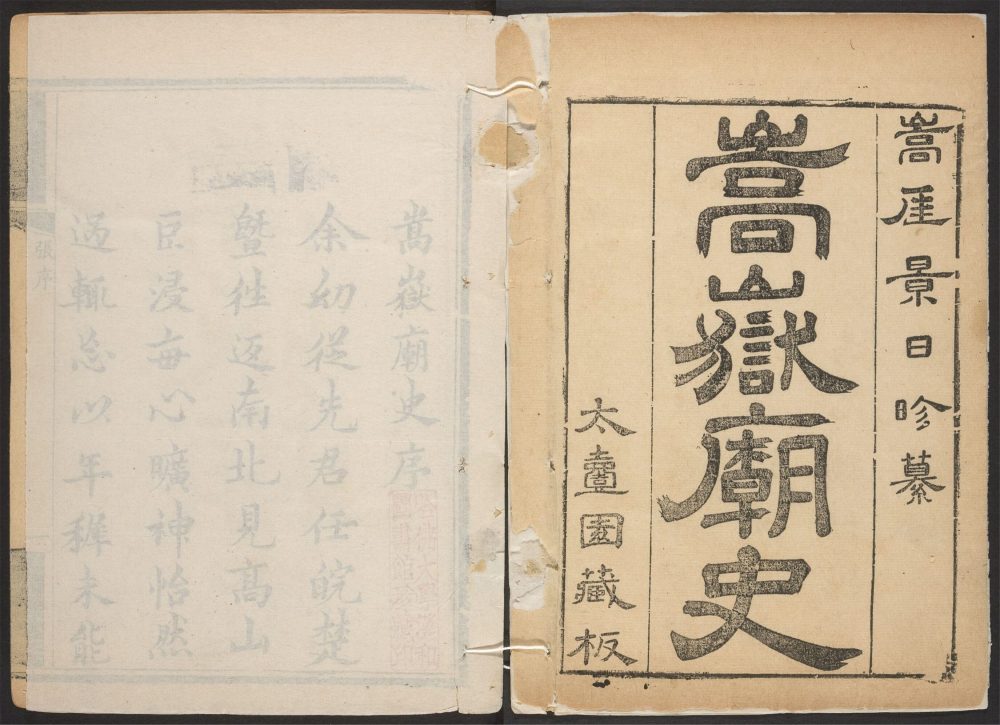 嵩厓景日昣纂
嵩嶽廟史
太壹園藏板
嵩嶽廟史序
余幼從先君任皖楚
曁往返南北見高山
巨浸每心曠神怡然
過輒忘以年穉未能
張序
一